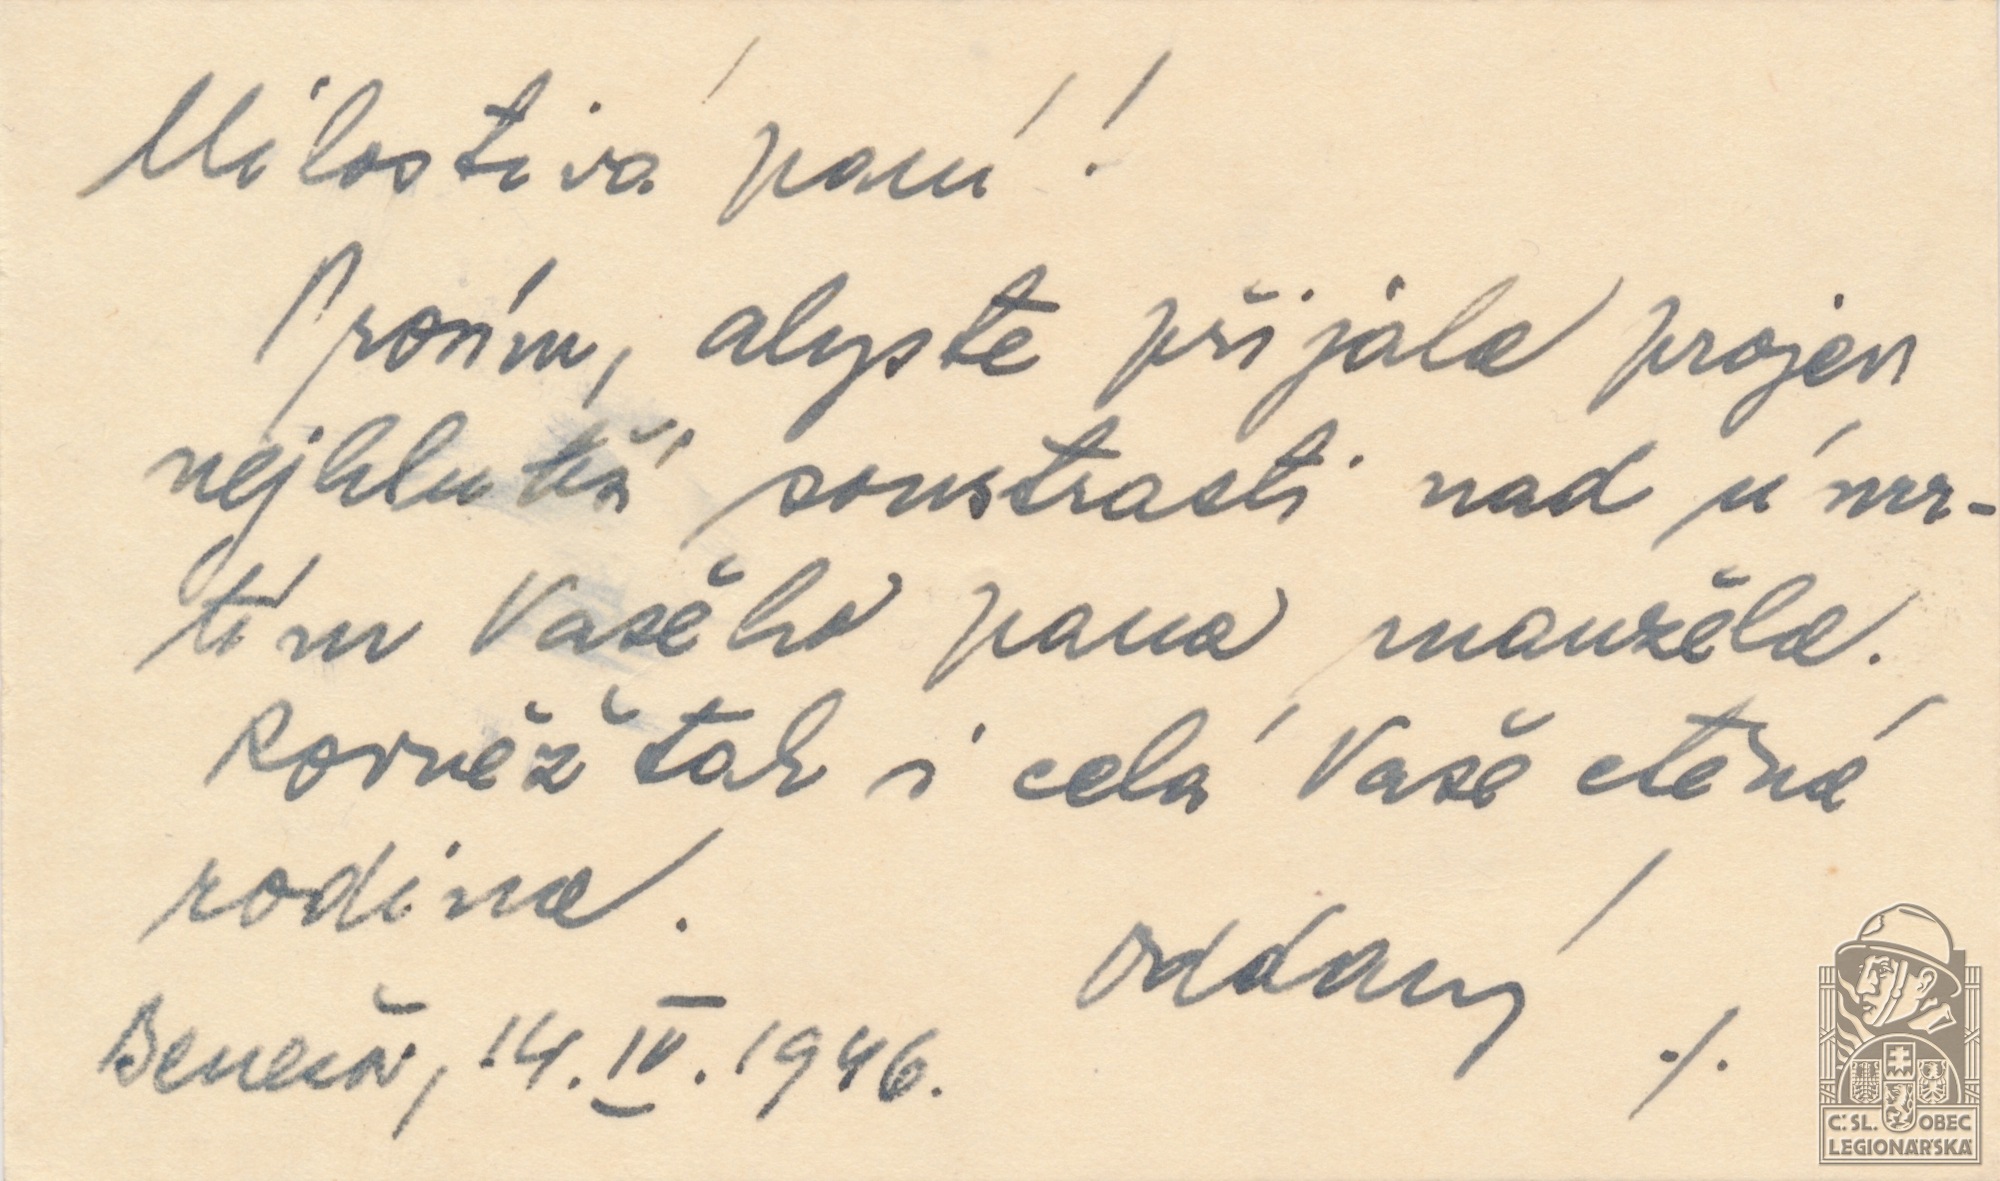 Milostivá paní!
Prosím, abyste přijala projev
nejhlubší soustrasti nad úmr-
tím Vašeho pana manžela.
Rovněž tak i celá Vaše ctěná
rodina.
oddaný
Benešov, 14. IV. 1946.
./.
Č.SL. OBEC
LEGIONÁŘSKÁ